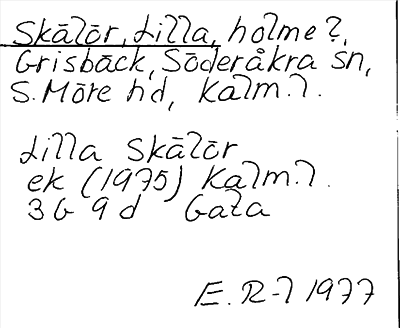 Skälör, Lilla, holme?,
Grisbäck, Söderåkra sn,
S. Möre hd, Kalm. l.
Lilla Skälör
ek (1975) Kalm. l.
3 G 9 d Gata
E. R-l 1977